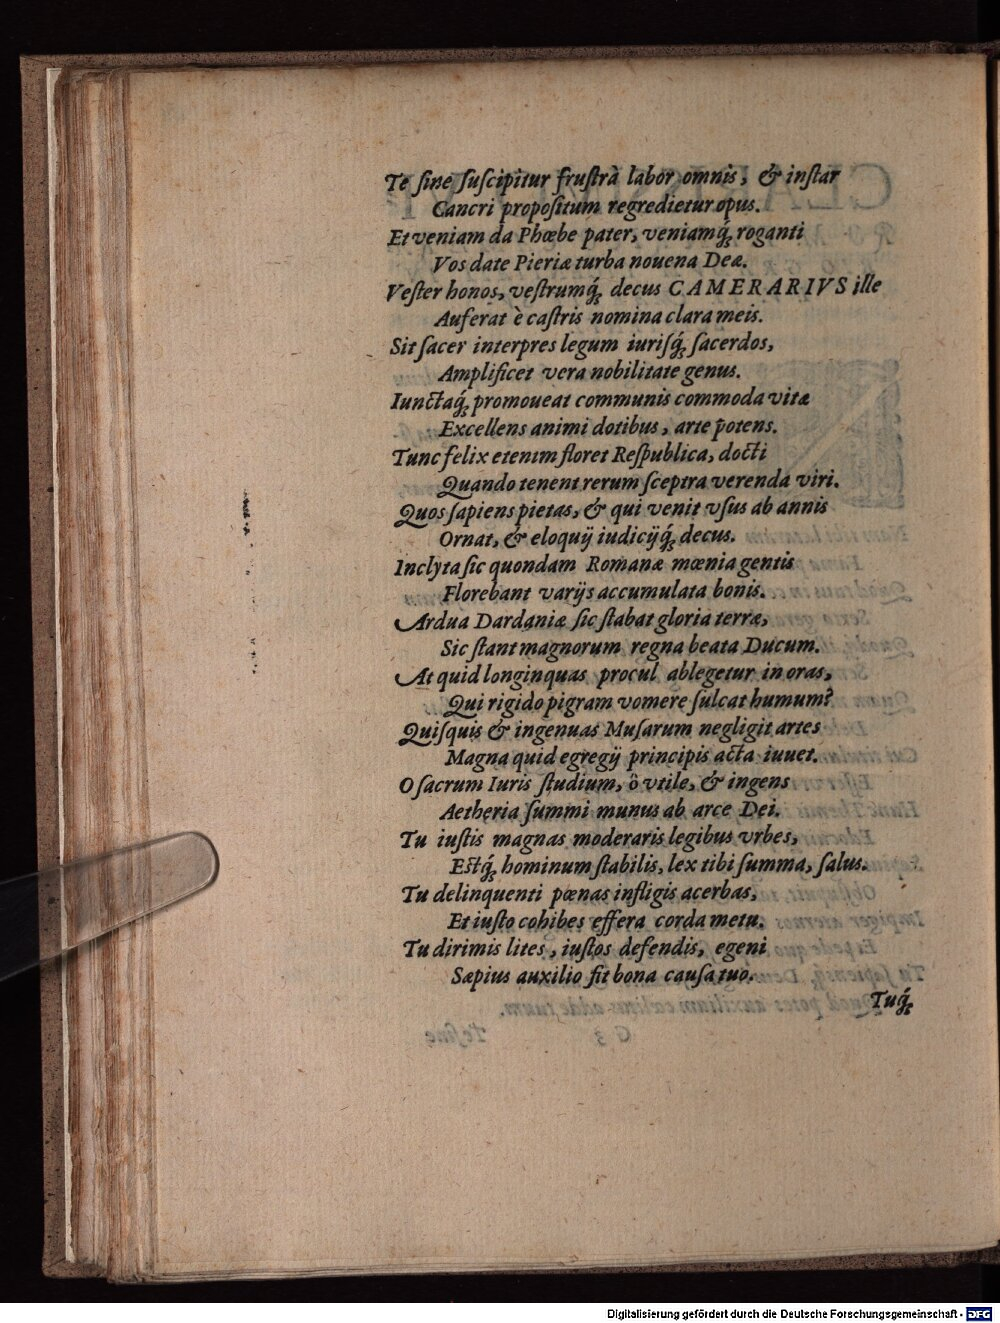 Te ſine ſuſcipitur fruſtrà labor omnis, & inſtar
Cancri propoſitum regredietur opus.
Et veniam da Phœbe pater, veniamq́; roganti
Vos date Pieriæ turba nouena Deæ.
Veſter honos, veſtrumq́; decus CAMERARIVS ille
Auferat è caſtris nomina clara meis.
Sit ſacer interpres legum iuriſq́; ſacerdos,
Amplificet vera nobilitate genus.
Iunctaq́; promoueat communis commoda vitæ
Excellens animi dotibus, arte potens.
Tunc felix etenim floret Reſpublica, docti
Quando tenent rerum ſceptra verenda viri.
Quos ſapiens pietas, & qui venit vſus ab annis
Ornat, & eloquij iudicijq́; decus.
Inclyta ſic quondam Romanæ mœnia gentis
Florebant varijs accumulata bonis.
Ardua Dardaniæ ſic ſtabat gloria terræ,
Sic ſtant magnorum regna beata Ducum.
At quid longinquas procul ablegetur in oras,
Qui rigido pigram vomere ſulcat humum?
Quiſquis & ingenuas Muſarum negligit artes
Magna quid egregij principis acta iuuet.
O ſacrum Iuris ſtudium, ô vtile, & ingens
Aetheria ſummi munus ab arce Dei.
Tu iuſtis magnas moderaris legibus vrbes,
Eſtq́; hominum ſtabilis, lex tibi ſumma, ſalus.
Tu delinquenti pœnas infligis acerbas,
Et iuſto cohibes effera corda metu.
Tu dirimis lites, iuſtos defendis, egeni
Sæpius auxilio fit bona cauſa tuo.
Tuq́;
Digitalisierung gefördert durch die Deutsche Forschungsgemeinschaft - DFG